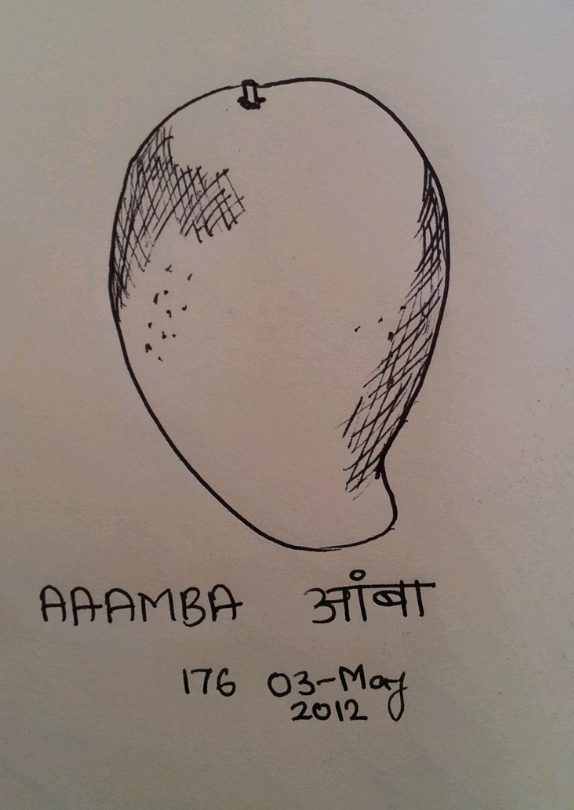 AAAMBA आंबा
176 03-May
2012